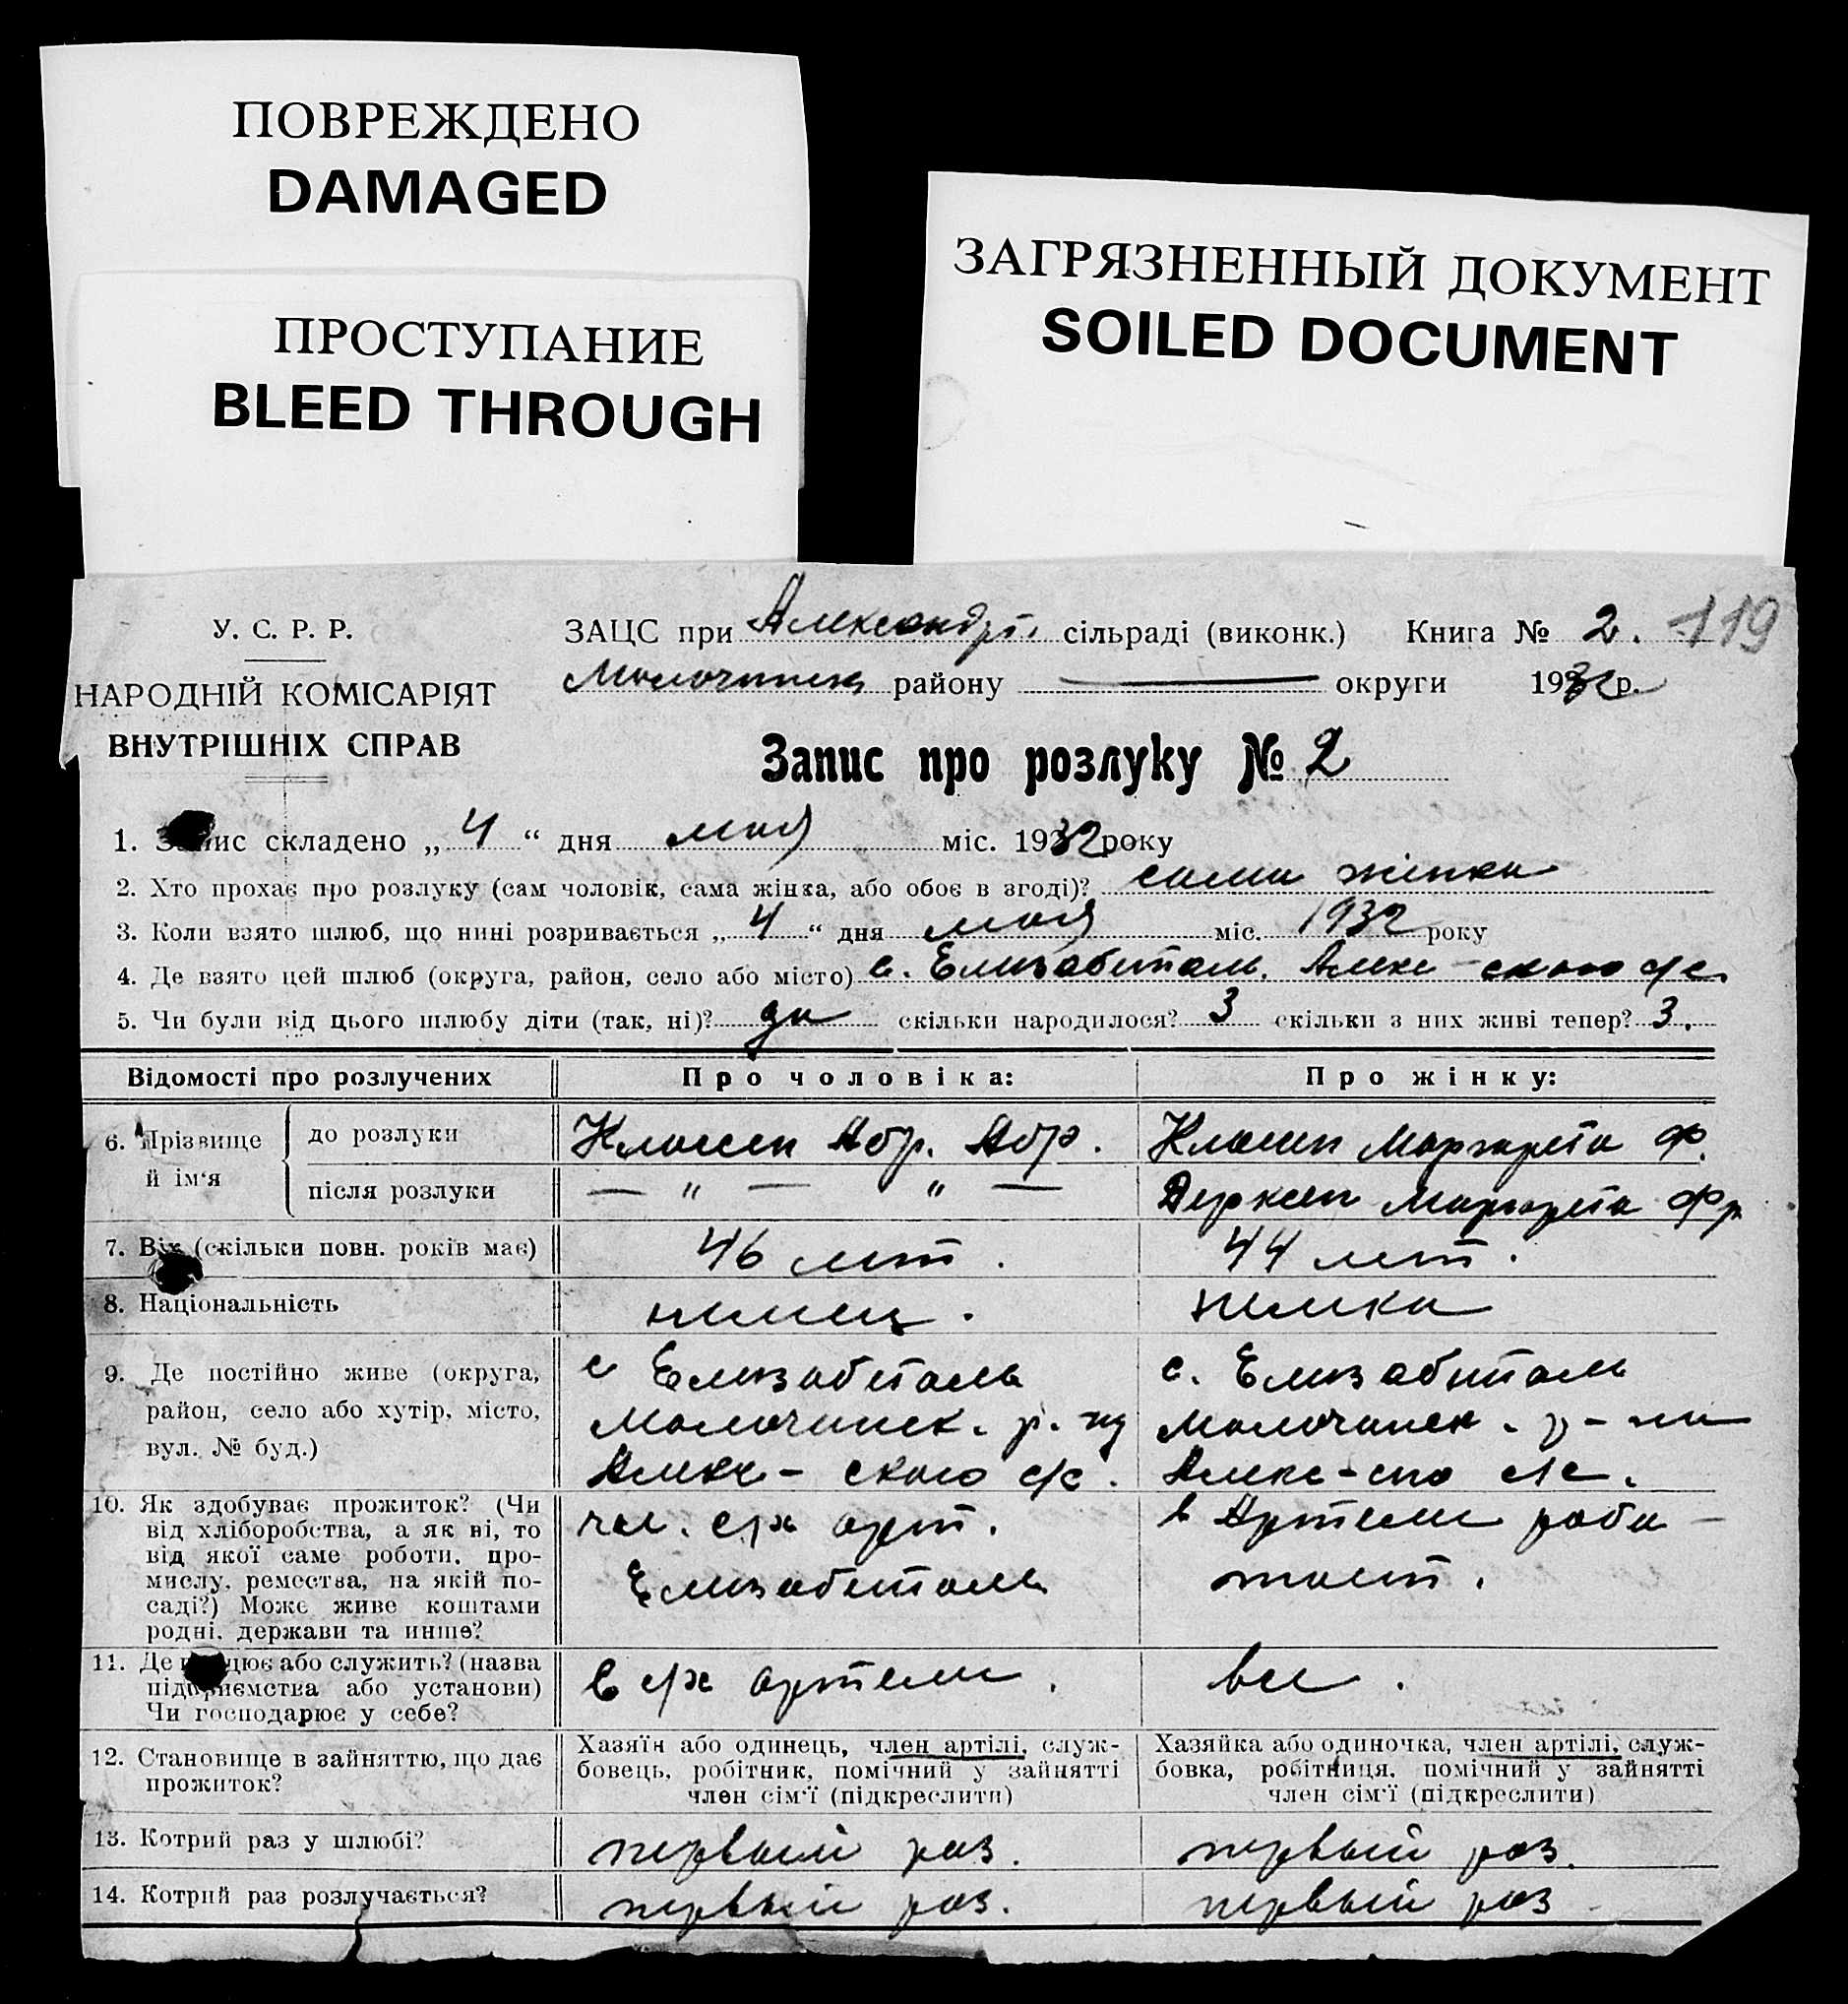 ПОВРЕЖДЕНО
DAMAGED
ПРОСТУПАНИЕ
BLEED THROUGH
ЗАГРЯЗНЕННЫЙ ДОКУМЕНТ
SOILED DOCUMENT
У. С. Р. Р.
НАРОДНІЙ КОМІСАРІЯТ
ВНУТРІШНІХ СПРАВ
ЗАЦС при Александр. сільраді (виконк.) Книга № 2. 119
Молочинск района округи 1932 р.
Запис про розлуку № 2
1. Запис складено „ 4 “ дня мая міс. 1932 року
2. Хто прохає про розлуку (сам чоловік, сама жінка, або обоє в згоді)? сама жінка
3. Коли взято шлюб, що нині розривається „ 4 “ дня мая міс. 1932 року
4. Де взято цей шлюб (округа, район, село або місто) с. Елизабеталь, Алекс-ского с/с.
5. Чи були від цього шлюбу діти (так, ні)? да скільки народилося? 3 скільки з них живі тепер? 3.
Відомості про розлучених
Про чоловіка:
Про жінку:
6. Прізвище й ім'я
до розлуки
Класен Абр. Абр.
Класен Маргарета Ф.
після розлуки
— " — " —
Дерксен Маргарета Фр
7. Вік (скільки повн. років має)
46 лет.
44 лет.
8. Національність
немец.
немка
9. Де постійно живе (округа,
район, село або хутір, місто,
вул. № буд.)
с Елизабеталь
Молочинск. р.
Алекс-ского с/с.
с. Елизабеталь
Молочинск. р-на
Алекс-го с/с.
10. Як здобуває прожиток? (Чи
від хліборобства, а як ні, то
від якої саме роботи, про-
мислу, ремества, на якій по-
саді?) Може живе коштами
родні, держави та инше?
чл. с/х арт.
Елизабеталь
в Артели рабо-
тает.
11. Де працює або служить? (назва
підприємства або установи)
Чи господарює у себе?
в с/х артели.
12. Становище в зайняттю, що дає
прожиток?
Хазяїн або одинець, член артілі, служ-
бовець, робітник, помічний у зайнятті
член сім'ї (підкреслити)
Хазяйка або одиночка, член артілі, служ-
бовка, робітниця, помічний у зайнятті
член сім'ї (підкреслити)
13. Котрий раз у шлюбі?
первый раз.
первый раз.
14. Котрий раз розлучається?
первый раз.
первый раз